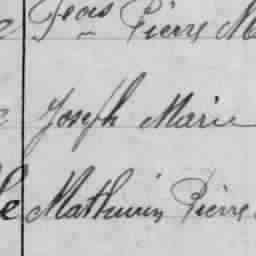 Fcois Pierre M
Joseph Marie
Mathurin Pierre